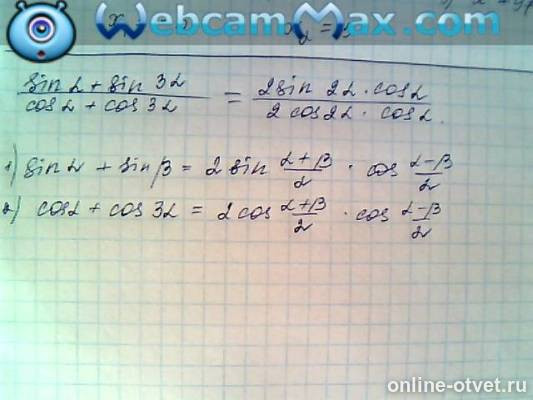 WebcamMax.com
www.
sin α + sin 3α / cos α + cos 3α = 2 sin 2α · cos α / 2 cos 2α · cos α.
1) sin α + sin β = 2 sin α+β/2 · cos α-β/2
2) cos α + cos 3α = 2 cos α+β/2 · cos α-β/2
online-otvet.ru